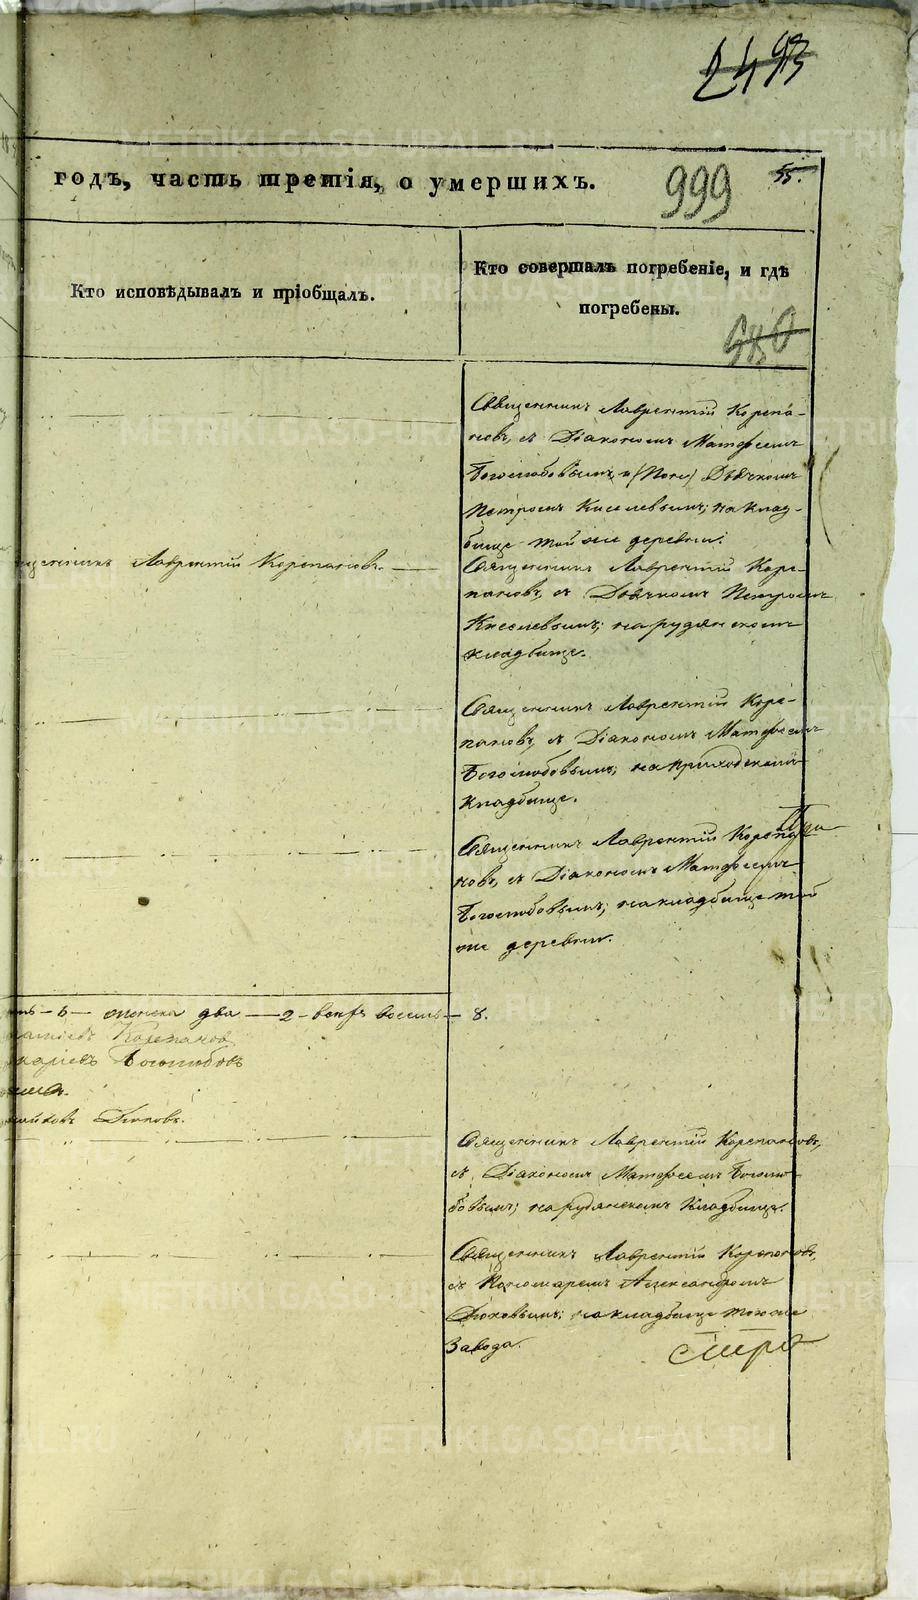 годъ, часть третія, о умершихъ.
999
55.
Кто исповѣдывалъ и пріобщалъ.
Кто совершалъ погребеніе, и гдѣ
погребены.
980
Священникъ Лаврентій Корепа-
новъ, съ Діакономъ Матфеемъ
Боголюбовымъ, и Дьячкомъ
Петромъ Киселевымъ; на клад-
бище той же деревни.
Лаврентій Корепановъ.
Священникъ Лаврентій Коре-
пановъ, съ Дьячкомъ Петромъ
Киселевымъ; на рудянскомъ
кладбище.
Священникъ Лаврентій Коре-
пановъ, съ Діакономъ Матфеемъ
Боголюбовымъ; на приходскомъ
кладбище.
Священникъ Лаврентій Корепа-
новъ, съ Діакономъ Матфеемъ
Боголюбовымъ; на кладбище той
же деревни.
женска два — 2 — всехъ восемь — 8.
Корепановъ
Боголюбовъ
Священникъ Лаврентій Корепановъ,
съ Діакономъ Матфеемъ Боголю-
бовымъ; на рудянскомъ Кладбище.
Священникъ Лаврентій Корепановъ,
съ Пономаремъ Александромъ
на кладбище того же
Завода.
METRIKI.GASO-URAL.RU